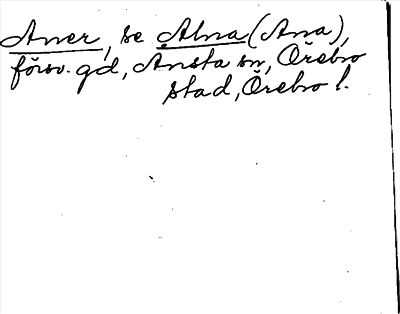 Aner, se Alna (Ana),
försv. gd, Ånsta sn, Örebro
stad, Örebro l.